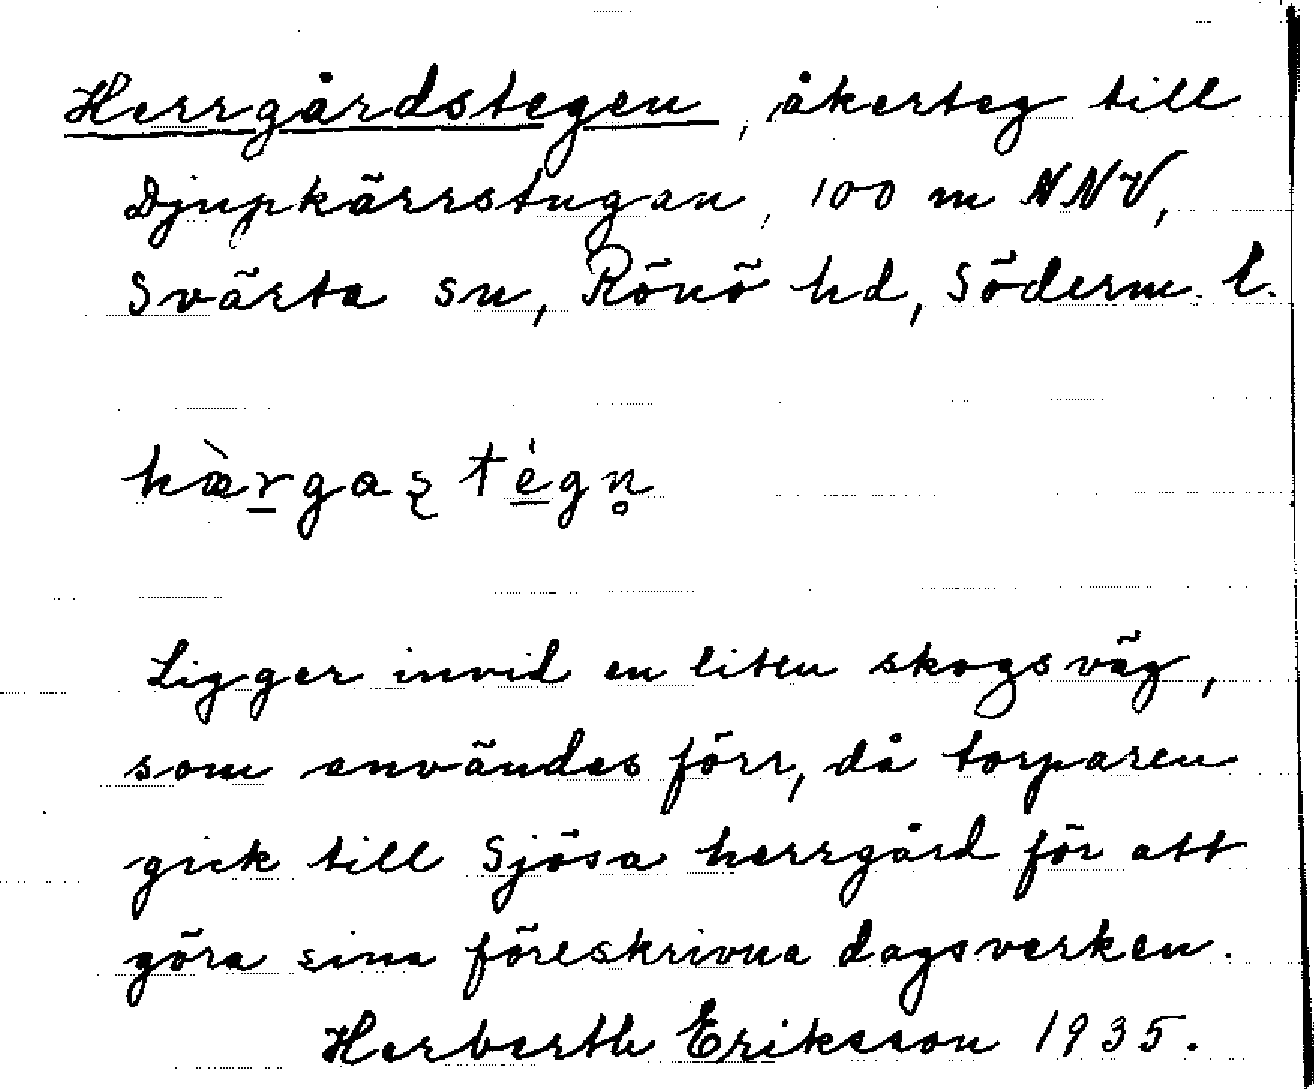 Herrgårdstegen, åkerteg till
Djupkärrstugan, 100 m NNV,
Svärta sn, Rönö hd, Söderm. l.
hæ̀r̲gaʂ té̲gn̥
Ligger invid en liten skogsväg,
som användes förr, då torparen
gick till Sjösa herrgård för att
göra sina föreskrivna dagsverken.
Herberth Eriksson 1935.